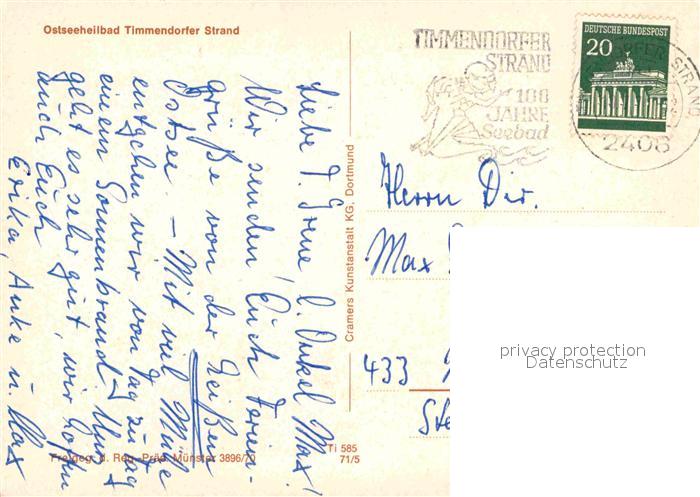 Ostseeheilbad Timmendorfer Strand
TIMMENDORFER
STRAND
100
JAHRE
Seebad
DEUTSCHE BUNDESPOST
20
2408
Liebe T. Irene, l. Onkel Max!
Wir senden Euch Ferien-
grüße von der heißen
Ostsee. – Mit viel Mühe
entgehen wir von Tag zu Tag
einem Sonnenbrand. Uns
geht es sehr gut, wir hoffen
auch Euch
Erika, Anke u. Max
Cramers Kunstanstalt KG, Dortmund
Ti 585
71/5
Freigeg. d. Reg.-Präs. Münster 3896/70
Herrn Dir.
Max
433
Ste
privacy protection
Datenschutz